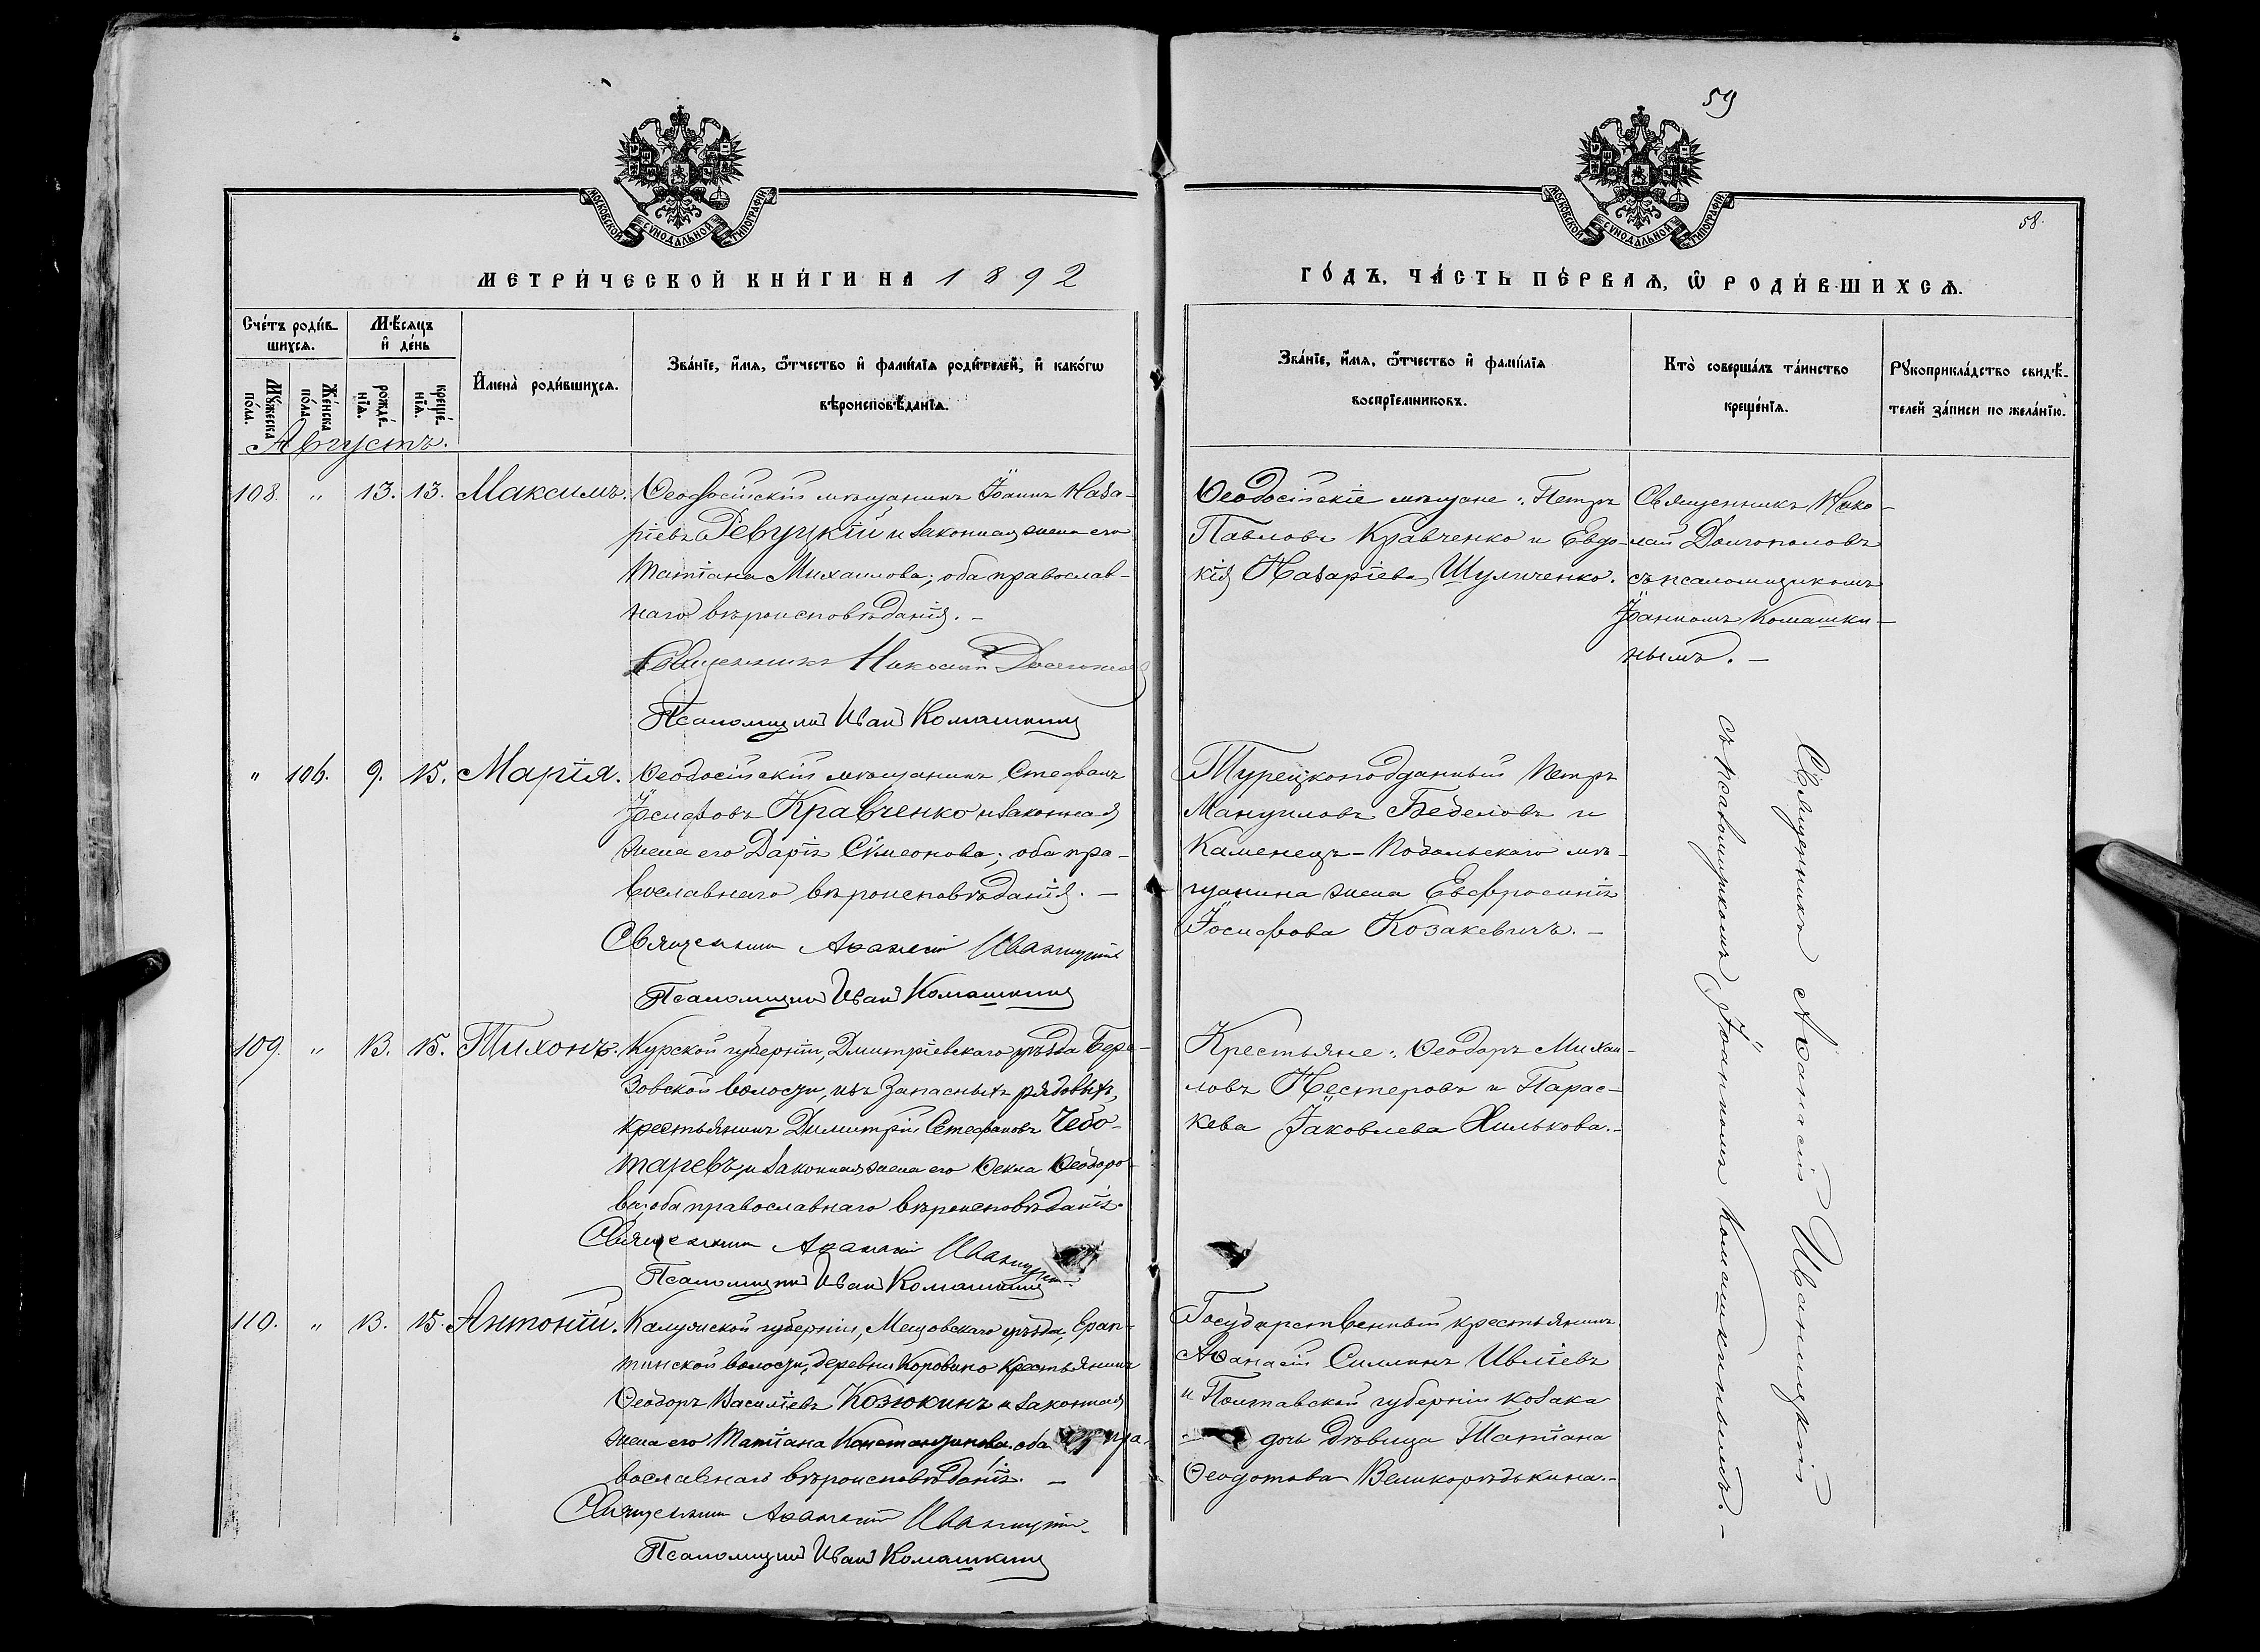 59
МОСКОВСКОЙ СУНОДАЛЬНОЙ ТИПОГРАФІИ
МОСКОВСКОЙ СУНОДАЛЬНОЙ ТИПОГРАФІИ
58.
МЕТРИ́ЧЕСКОЙ КНИ́ГИ НА 1892
ГО́ДЪ, ЧА́СТЬ ПЕ́РВАѦ, Ѡ РОДИ́ВШИХСѦ.
Сче́тъ роди́в-
шихсѧ.
Мѣ́сѧцъ
и҆ де́нь
Мꙋ́жеска
по́ла.
Же́нска
по́ла.
рожде́-
нїѧ.
креще́-
нїѧ.
И҆мена̀ роди́вшихсѧ.
Зва́нїе, и҆́мѧ, ѻ҆́тчество и҆ фами́лїѧ роди́телей, и҆ како́гѡ
вѣроисповѣ́данїѧ.
Зва́нїе, и҆́мѧ, ѻ҆́тчество и҆ фами́лїѧ
воспрїе́мниковъ.
Кто̀ соверша́лъ та́инство
креще́нїѧ.
Рꙋкоприкла́дство свидѣ́-
телей за́писи по жела́нїю.
Августъ.
108. „ 13. 13. Максимъ.
Ѳеодосійскій мѣщанинъ Іоаннъ Наза-
ріевъ Девуцкій и законная жена его
Татіана Михаилова; оба православ-
наго вѣроисповѣданія. –
Священникъ Николай Долгополовъ
Псаломщикъ Иванъ Комашкинъ
Ѳеодосійскіе мѣщане: Петръ
Павловъ Кравченко и Евдо-
кія Назаріева Шуличенко.
Священникъ Нико-
лай Долгополовъ
съ псаломщикомъ
Іоанномъ Комашки-
нымъ. –
„ 106. 9. 15. Марія.
Ѳеодосійскій мѣщанинъ Стефанъ
Іосифовъ Кравченко и законная
жена его Дарія Сѵмеонова; оба пра-
вославнаго вѣроисповѣданія. –
Священникъ Аѳанасій Иваницкій
Псаломщикъ Иванъ Комашкинъ
Турецкоподданный Петръ
Мануиловъ Беделовъ и
Каменецъ-Подольскаго мѣ-
щанина жена Евфросинія
Іосифова Козакевичъ. –
Священникъ Аѳанасій Иваницкій
съ псаломщикомъ Іоанномъ Комашкинымъ. –
109. „ 13. 15. Тихонъ.
Курской губерніи, Дмитріевскаго уѣзда Бере-
зовской волости, изъ запасныхъ рядовыхъ,
крестьянинъ Димитрій Стефановъ Чебо-
таревъ, и законная жена его Ѳекла Ѳеодоро-
ва; оба православнаго вѣроисповѣданія.
Священникъ Аѳанасій Иваницкій
Псаломщикъ Иванъ Комашкинъ
Крестьяне: Ѳеодоръ Михаи-
ловъ Нестеровъ и Парас-
кева Іаковлева Хилькова. –
110. „ 13. 15. Антоній.
Калужской губерніи, Мещовскаго уѣзда,
волости, деревни Коровино крестьянинъ
Ѳеодоръ Василіевъ Козюкинъ и законная
жена его Татіана Константинова оба пра-
вославнаго вѣроисповѣданія. –
Священникъ Аѳанасій Иваницкій
Псаломщикъ Иванъ Комашкинъ
Государственный крестьянинъ
Аѳанасій Ивліевъ
и Полтавской губерніи козака
дочь дѣвица Татіана
Ѳеодотова Великорѣдькина. –